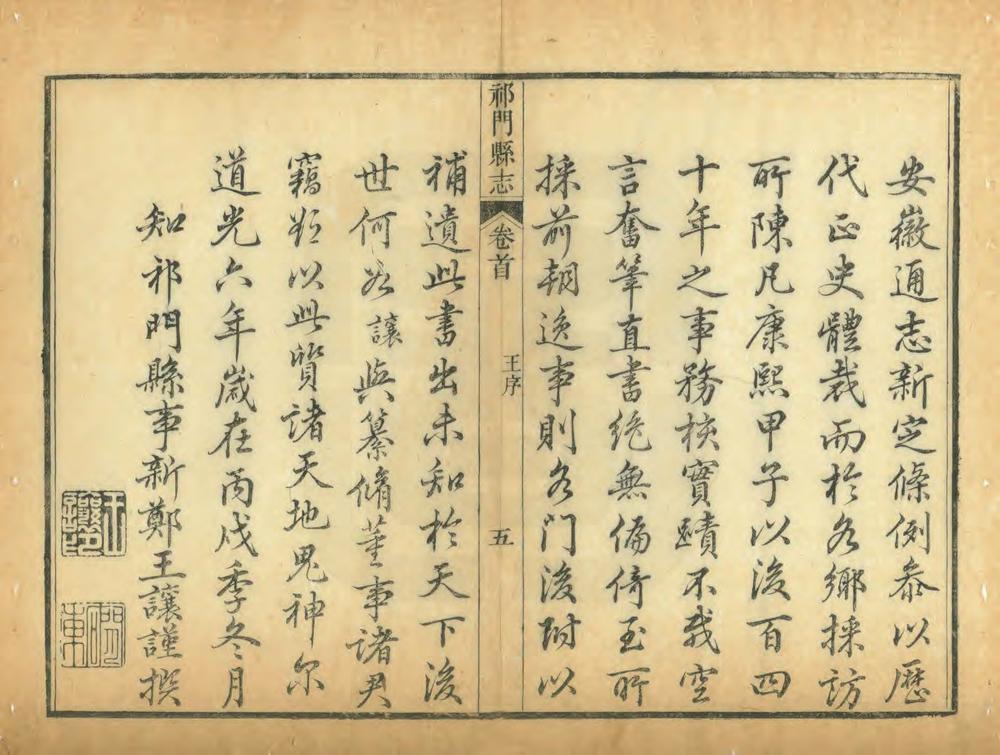 安徽通志新定條例叅以歷
代正史體裁而於各鄉採訪
所陳凡康熙甲子以後百四
十年之事務核實蹟不載空
言奮筆直書絶無偏倚至所
採前朝逸事則各門後附以
祁門縣志
卷首
王序
五
補遺此書出未知於天下後
世何如讓與纂脩董事諸君
竊願以此質諸天地鬼神尔
道光六年歲在丙戌季冬月
知祁門縣事新鄭王讓謹撰
王讓印